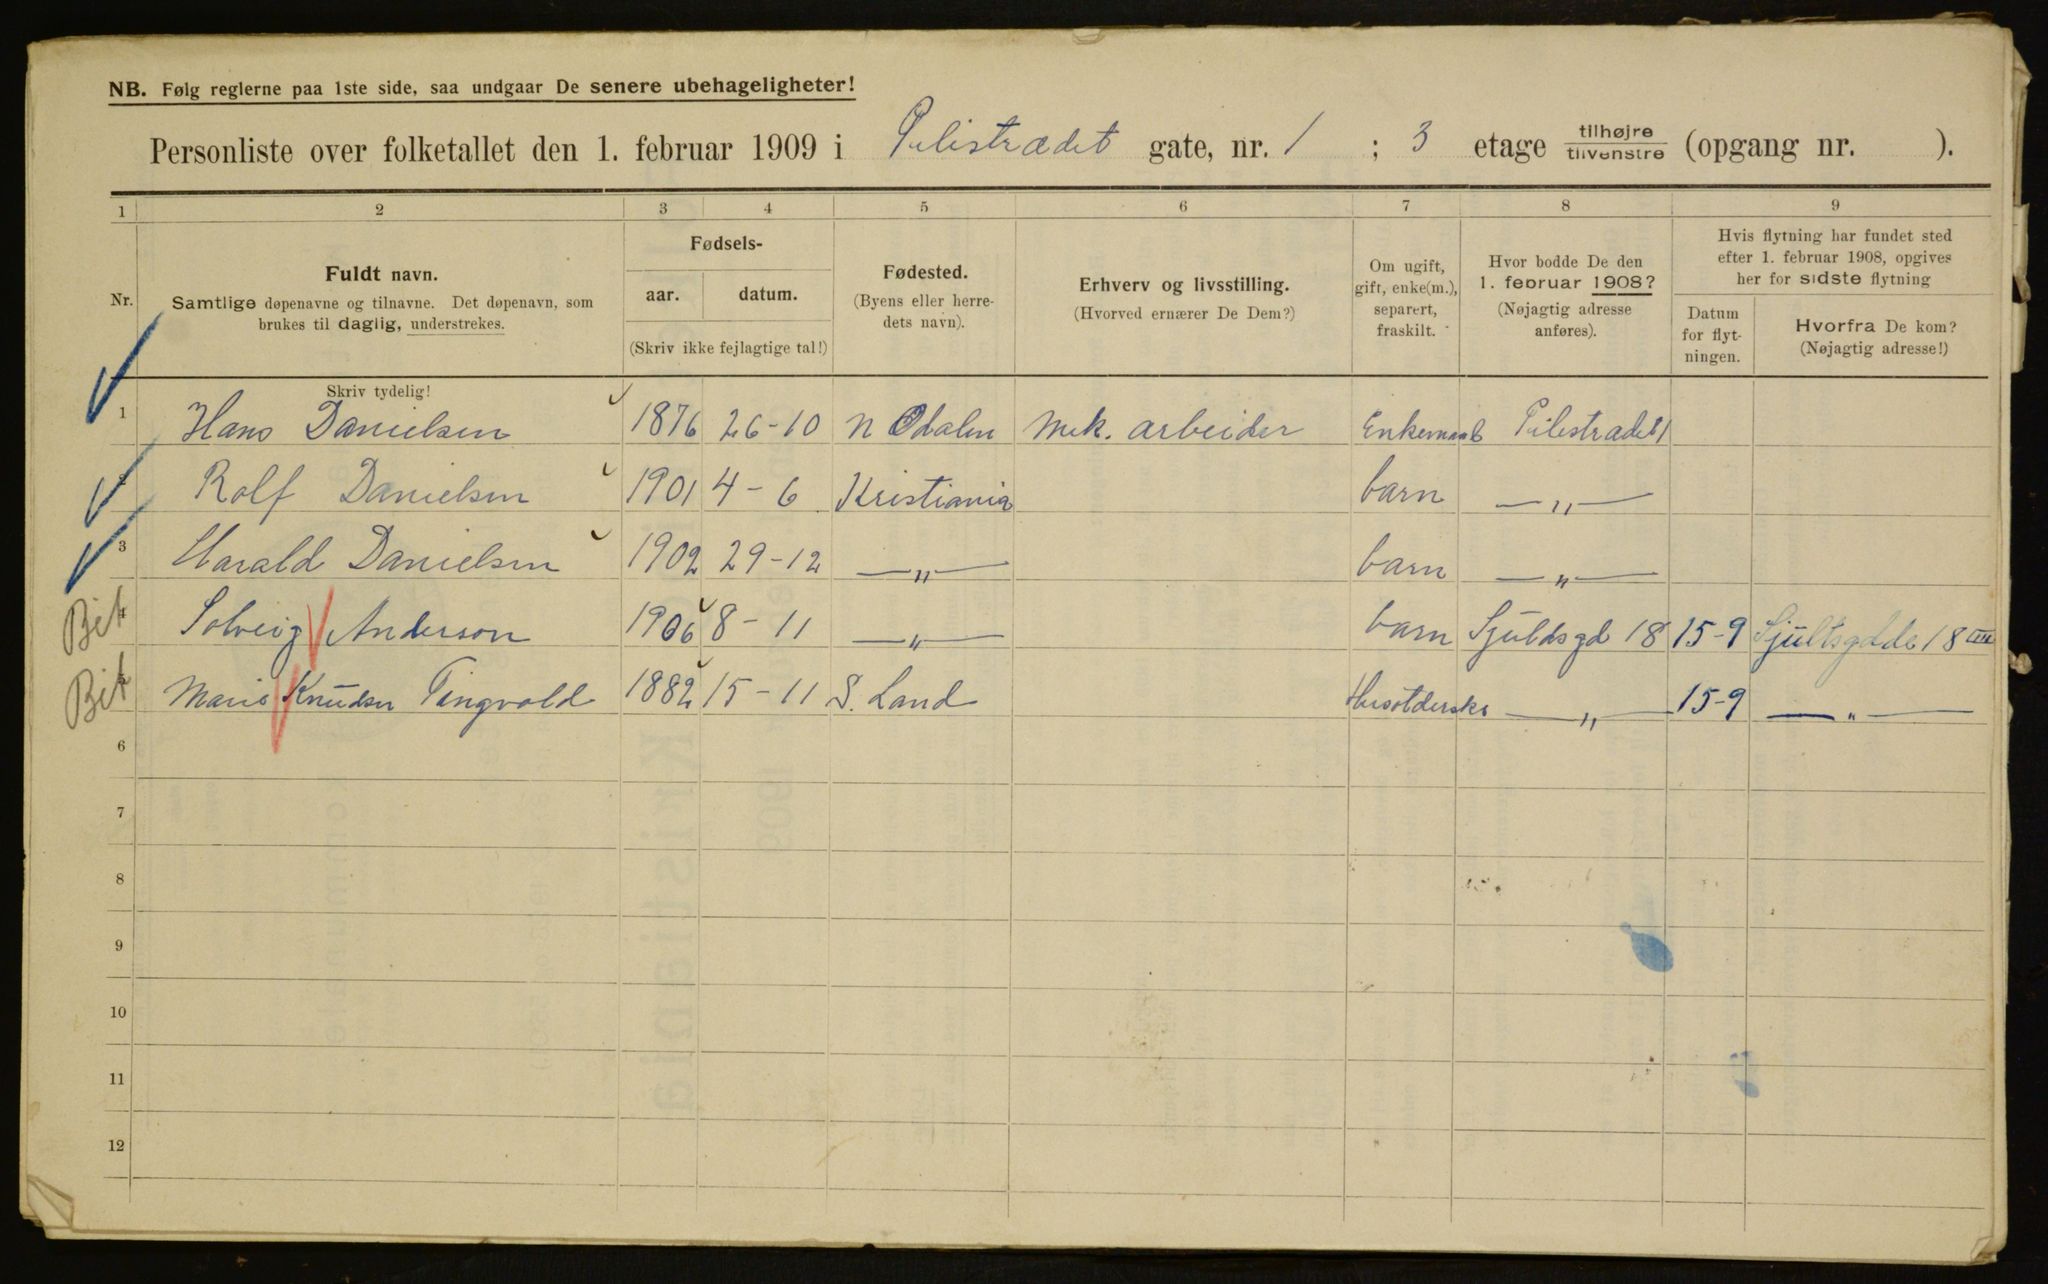 NB. Følg reglerne paa 1ste side, saa undgaar De senere ubehageligheter!
Personliste over folketallet den 1. februar 1909 i Pilestrædet gate, nr. 1 ; 3 etage tilhøjre/tilvenstre (opgang nr. ).
1 2 3 4 5 6 7 8 9
Nr.
Fuldt navn.
Samtlige døpenavne og tilnavne. Det døpenavn, som
brukes til daglig, understrekes.
Skriv tydelig!
Fødsels-
aar. datum.
(Skriv ikke fejlagtige tal!)
Fødested.
(Byens eller herre-
dets navn).
Erhverv og livsstilling.
(Hvorved ernærer De Dem?)
Om ugift,
gift, enke(m.),
separert,
fraskilt.
Hvor bodde De den
1. februar 1908?
(Nøjagtig adresse
anføres).
Hvis flytning har fundet sted
efter 1. februar 1908, opgives
her for sidste flytning
Datum
for flyt-
ningen.
Hvorfra De kom?
(Nøjagtig adresse!)
1 Hans Danielsen 1876 26-10 N Odalen Mek. arbeider Enkemand Pilestradet 1
2 Rolf Danielsen 1901 4-6 Kristiania barn —„—
3 Harald Danielsen 1902 29-12 —„— barn —„—
4 Solveig Anderson 1906 8-11 —„— barn Sjuldsgd 18 15-9 Sjultsgade 18 III
5 Marie Knudsen Tingvold 1882 15-11 S. Land Husolderske —„— 15-9 —„—
6
7
8
9
10
11
12